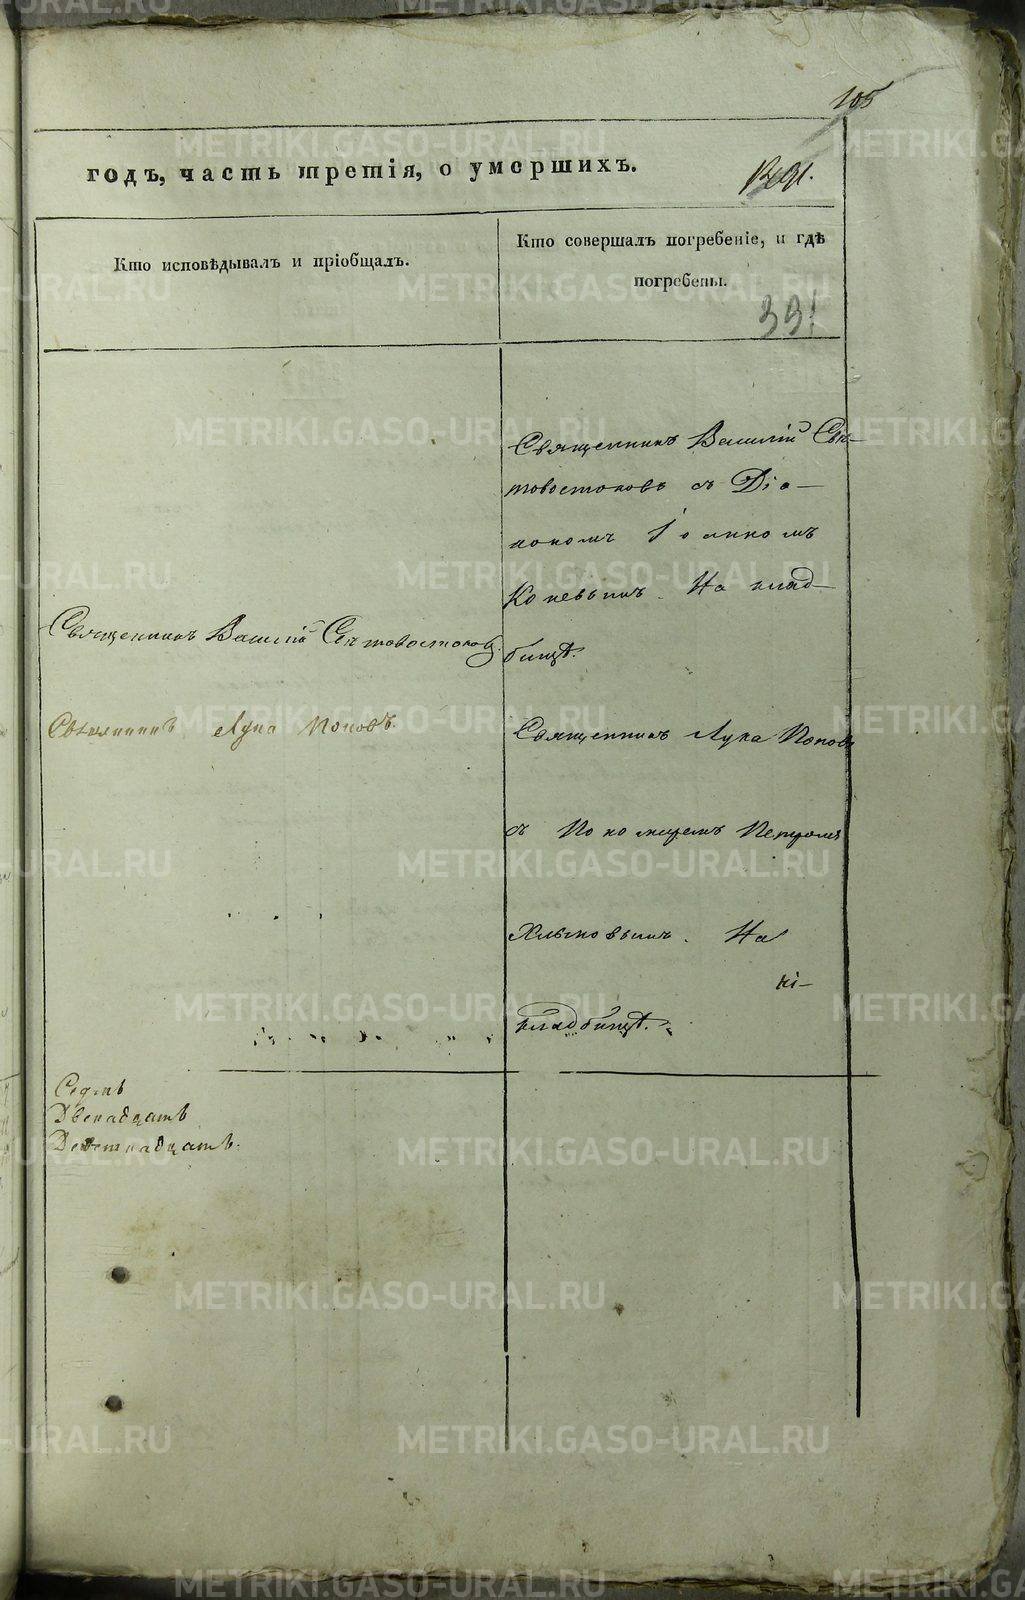 105
годъ, часть третія, о умершихъ.
Кто исповѣдывалъ и пріобщалъ.
Кто совершалъ погребеніе, и гдѣ
погребены.
Священникъ Василій Свѣ-
товостоковъ съ Діа-
кономъ Іоанномъ
Коневымъ. На клад-
бищѣ.
Священникъ Василій Свѣтовостоковъ.
Священникъ Лука Поповъ.
Священникъ Лука Поповъ
съ Пономаремъ Петромъ
Хлыновымъ. На
кладбищѣ.
Седмь
Двенадцать
Деветнадцать.
METRIKI.GASO-URAL.RU